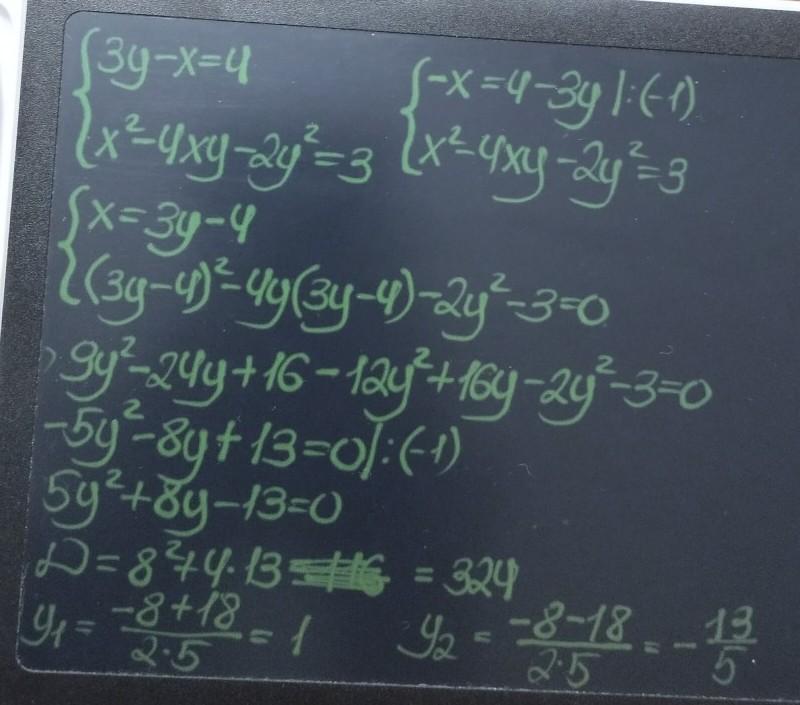 {3y-x=4 {-x=4-3y|:(-1)
{x²-4xy-2y²=3 {x²-4xy-2y²=3
{x=3y-4
{(3y-4)²-4y(3y-4)-2y²-3=0
9y²-24y+16-12y²+16y-2y²-3=0
-5y²-8y+13=0|:(-1)
5y²+8y-13=0
D=8²+4·13 = 324
y₁ = (-8+18)/(2·5) = 1 y₂ = (-8-18)/(2·5) = -13/5